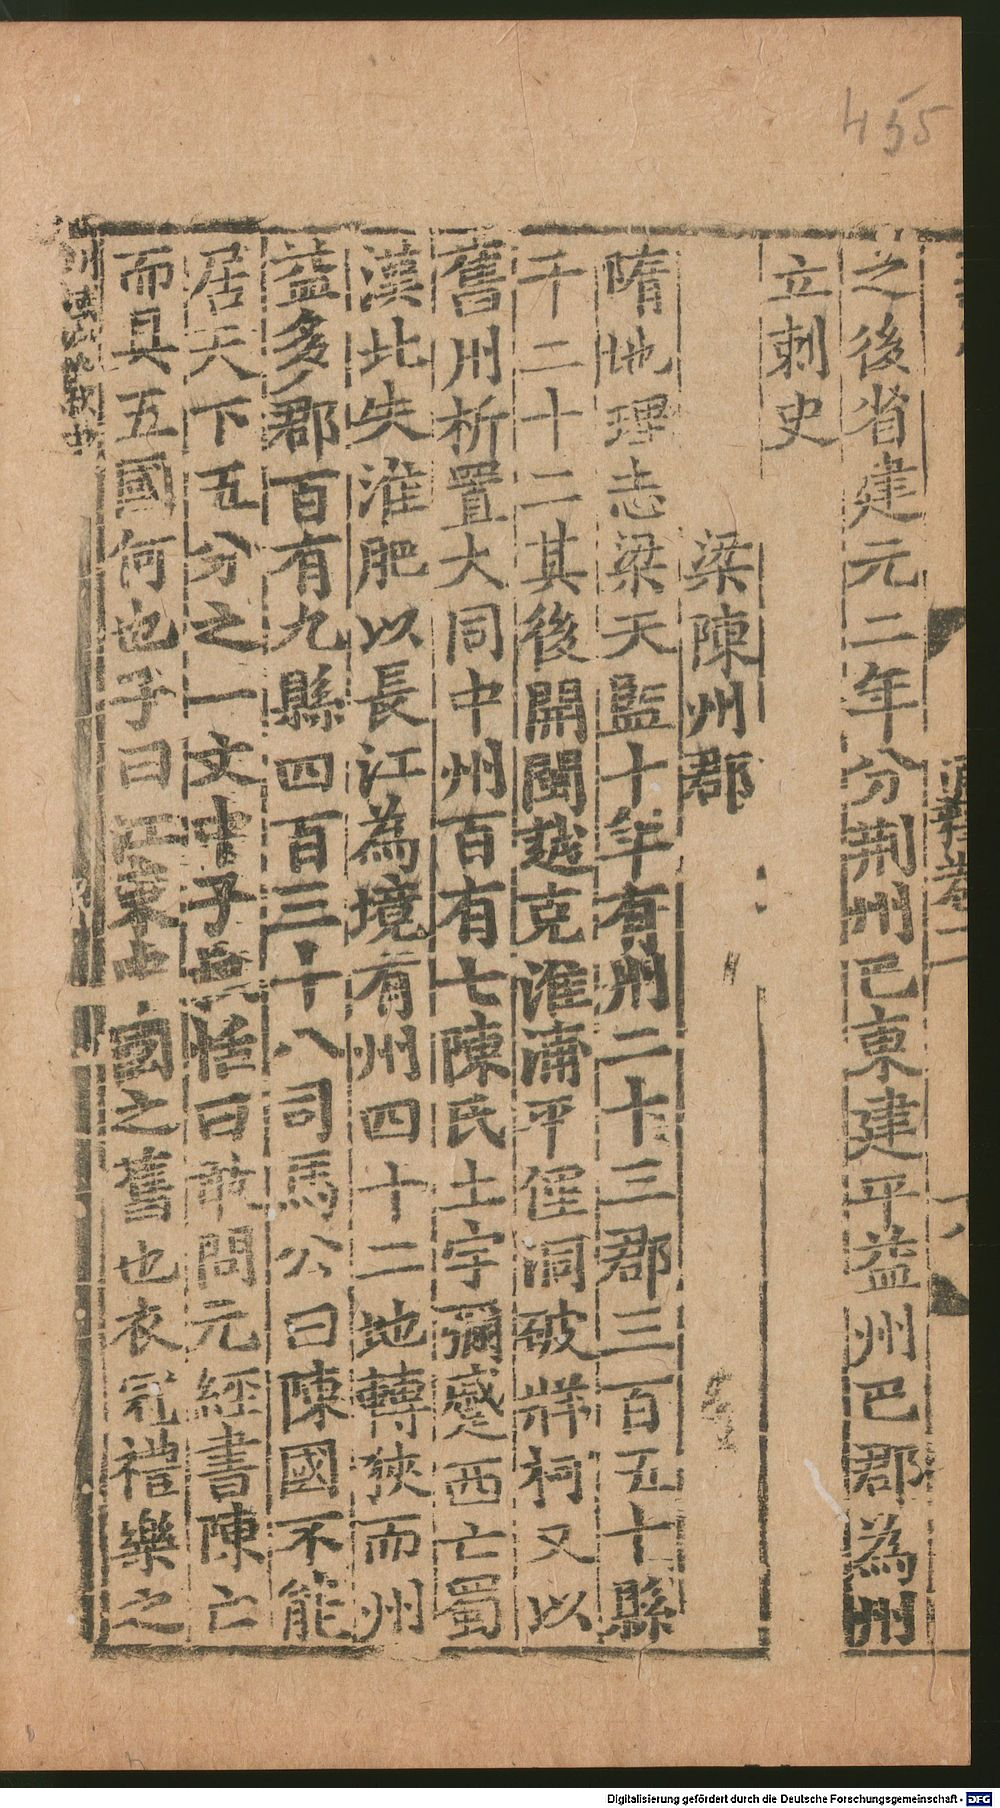 455
之後省建元二年分荆州巴東建平益州巴郡為州
立刺史
梁陳州郡
隋地理志梁天監十年有州二十三郡三百五十縣
千二十二其後開閩越克淮浦平俚洞破牂牁又以
舊州析置大同中州百有七陳氏土宇彌蹙西亡蜀
漢北失淮肥以長江為境有州四十二地轉狹而州
益多郡百有九縣四百三十八司馬公曰陳國不能
居天下五分之一文中子 恬曰敢問元經書陳亡
而具五國何也子曰江東 國之舊也衣冠禮樂之
Digitalisierung gefördert durch die Deutsche Forschungsgemeinschaft - DFG